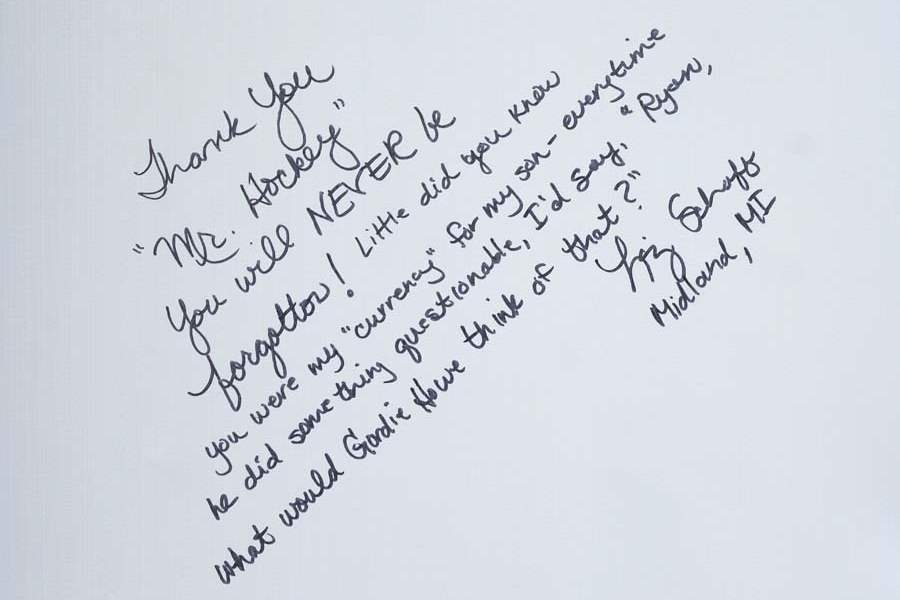 Thank You
"Mr. Hockey"
You will NEVER be
forgotton! Little did you know
you were my "currency" for my son - everytime
he did something questionable, I'd say, "Ryan,
what would Gordie Howe think of that?"
Liz Schaft
Midland, MI